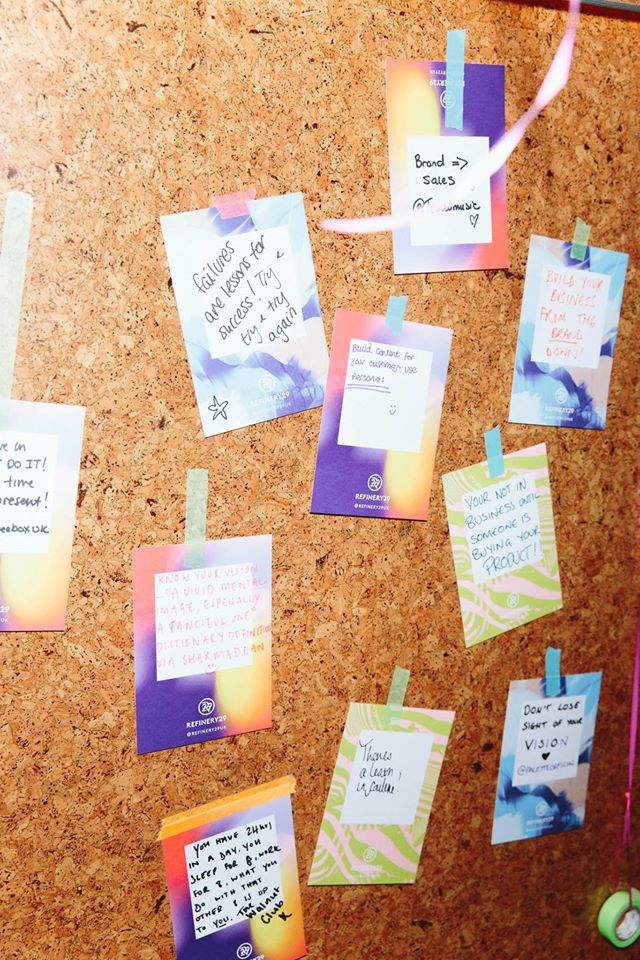 REFINERY29
Brand =>
Sales
failures
are lessons for
success! Try &
try & try
again
REFINERY29
BUILD YOUR
BUSINESS
FROM THE
BRAND
DOWN!
REFINERY29
Build content for
your customer use
Personas
REFINERY29
@REFINERY29UK
DO IT!
time
present!
YOUR NOT IN
BUSINESS UNTIL
SOMEONE IS
BUYING YOUR
PRODUCT!!
KNOW YOUR VISION
- "A VIVID MENTAL
IMAGE, ESPECIALLY
A FANCIFUL ONE"
DICTIONARY DEFINITION
VIA SHARMADEAN
REFINERY29
@REFINERY29UK
DON'T LOSE
SIGHT OF YOUR
VISION
Theres
a lesson,
in failure.
YOU HAVE 24hrs
IN A DAY. YOU
SLEEP FOR 8, WORK
FOR 8. WHAT YOU
DO WITH THAT
OTHER 8 IS UP
TO YOU. The
Walnut
Club